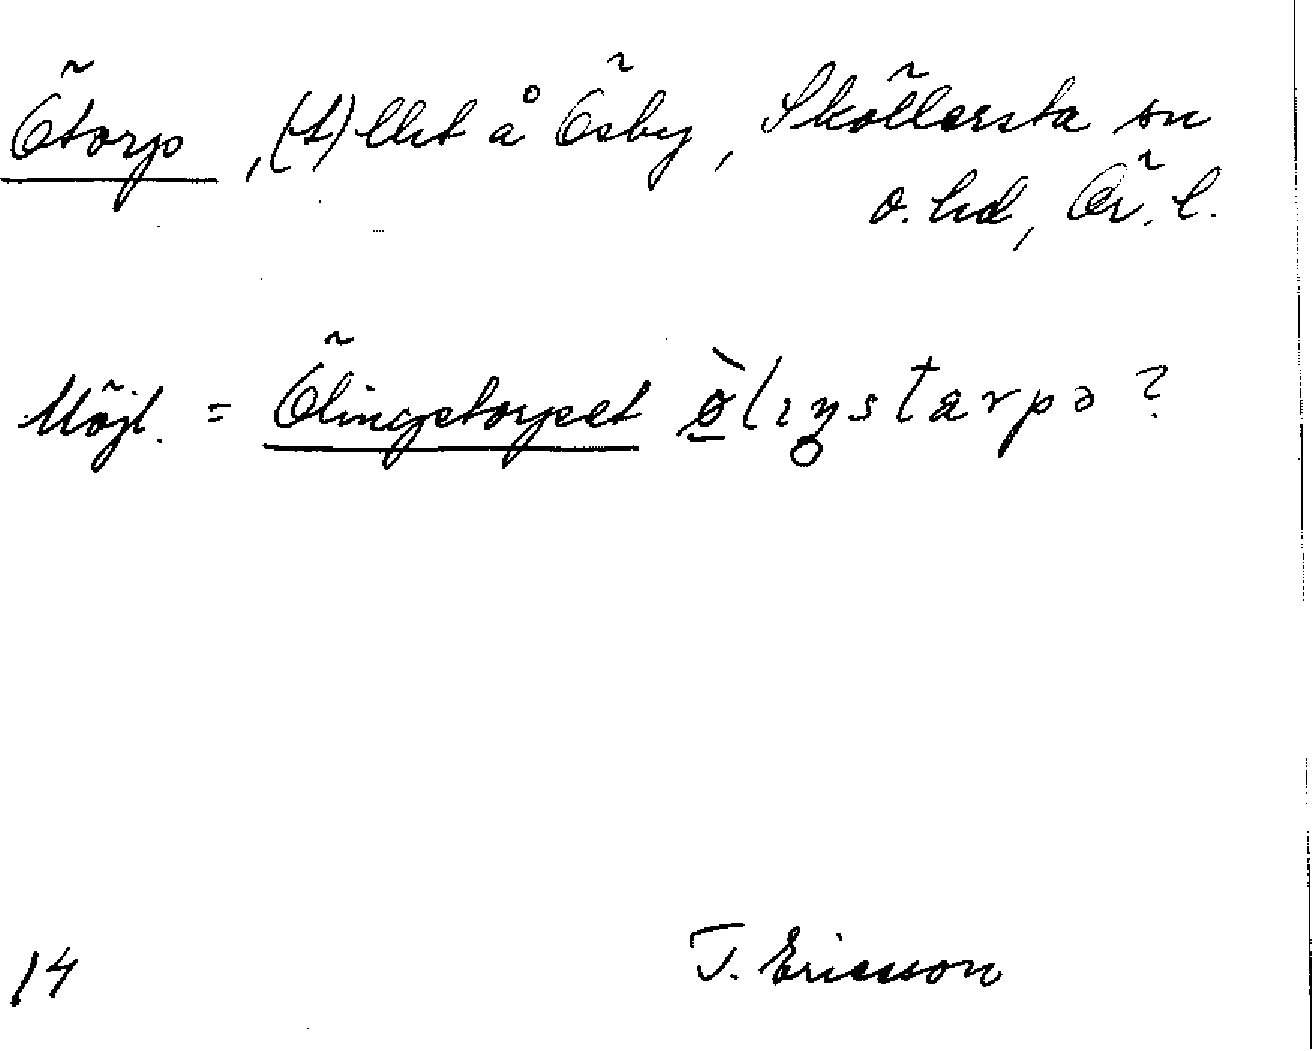 Ötorp, (t) lht å Ösby, Sköllersta sn
o. hd, Ör. l.
Möjl. = Ölingstorpet ø̀lıŋstarpə ?
14 T. Ericsson